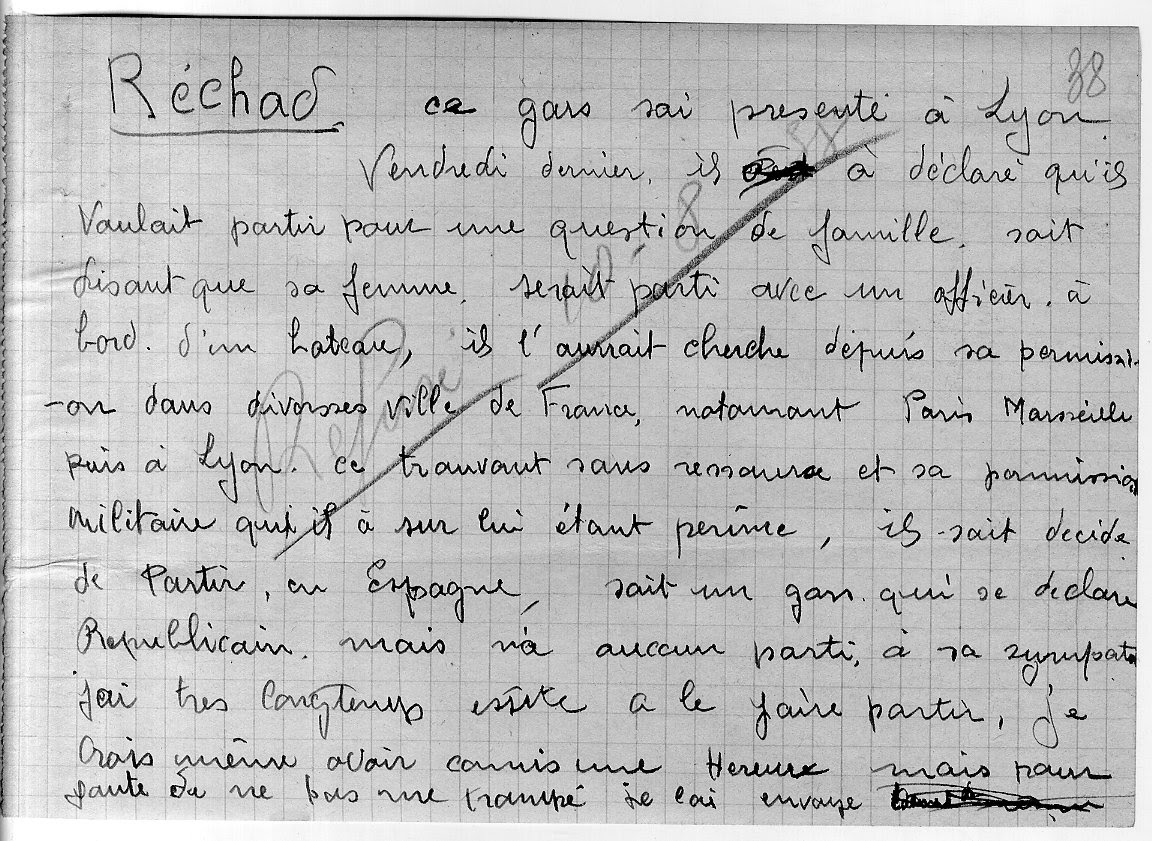 38
Réchad. ce gars sai presenté à Lyon.
Vendredi dernier, il à déclaré qu'il
Vaulait partir pour une question de famille. sait
disant que sa femme, serait parti avec un officièr. à
bord. d'un bateau, il l'aurait cherche dépuis sa permissi-
-on dans divorsses ville de France, notamant Paris Marseille
puis à Lyon. ce trauvant sans ressource et sa permission
militaire qui il à sur lui étant perîmé, il sait decide
de Partir, en Espagne, sait un gars. qui se declare
Republicain. mais n'à aucun parti, à sa sympat
j'ai tres longtemps esite a le faire partir, je
Crois même avoir comis une Hereure mais pour
faute de ne pas me trampé je lai envoye
Refusé
10-8-38